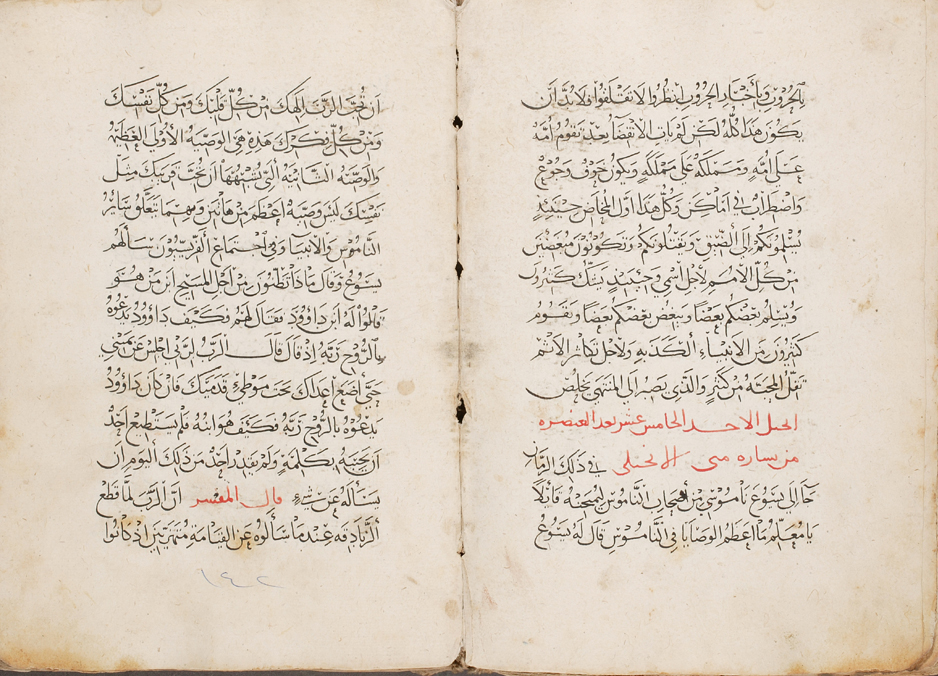 بالحروب وبأخبار الحروب انظروا لا تقلقوا فلا بد أن
يكون هذا كله لكن لم يات الانقضا بعد تقوم امه
على امه ومملكه على مملكه ويكون خوف وجوع
واضطراب في اماكن وكل هذا اول المخاض حينيذ
يسلمونكم إلى الضيق ويقتلونكم وتكونون مبغضين
من كل الأمم لأجل اسمي وحينيذ يشك كثيرون
ويسلم بعضكم بعضا ويبغض بعضكم بعضا ويقوم
كثيرون من الانبياء الكذبه ولاجل تكاثر الاثم
تقل المحبة من كثير والذي يصبر الى المنتهى يخلص
الاحد الخامس عشر بعد العنصره
من بشاره متى الانجيلي في ذلك الزمان
جا الى يسوع ناموسي من أصحاب الناموس ليمتحنه قائلا
يا معلم ما اعظم الوصايا في الناموس قال له يسوع
أن تحب الرب إلهك من كل قلبك ومن كل نفسك
ومن كل فكرك هذه هي الوصيه الأولى العظيمة
والوصيه الثانيه التي تشبهها ان تحب قريبك مثل
نفسك ليس وصية اعظم من هاتين وبهما يتعلق ساير
الناموس والأنبيا وفي اجتماع الفريسيون سالهم
يسوع وقال ماذا تظنون من أجل المسيح ابن من هو
قالوا له ابن داوود فقال لهم فكيف داوود يدعوه
بالروح ربه إذ قال قال الرب لربي اجلس عن يميني
حتى أضع أعداك تحت موطي قدميك فان كان داوود
يدعوه بالروح ربه فكيف هو ابنه فلم يستطيع احد
ان يجيبه بكلمة ولم يقدر احد من ذلك اليوم ان
يسأله عن شيء قال المفسر ان الرب لما قطع
الزنادقه عندما سألوه عن القيامة منتهرين اذ كانوا
١٤٢